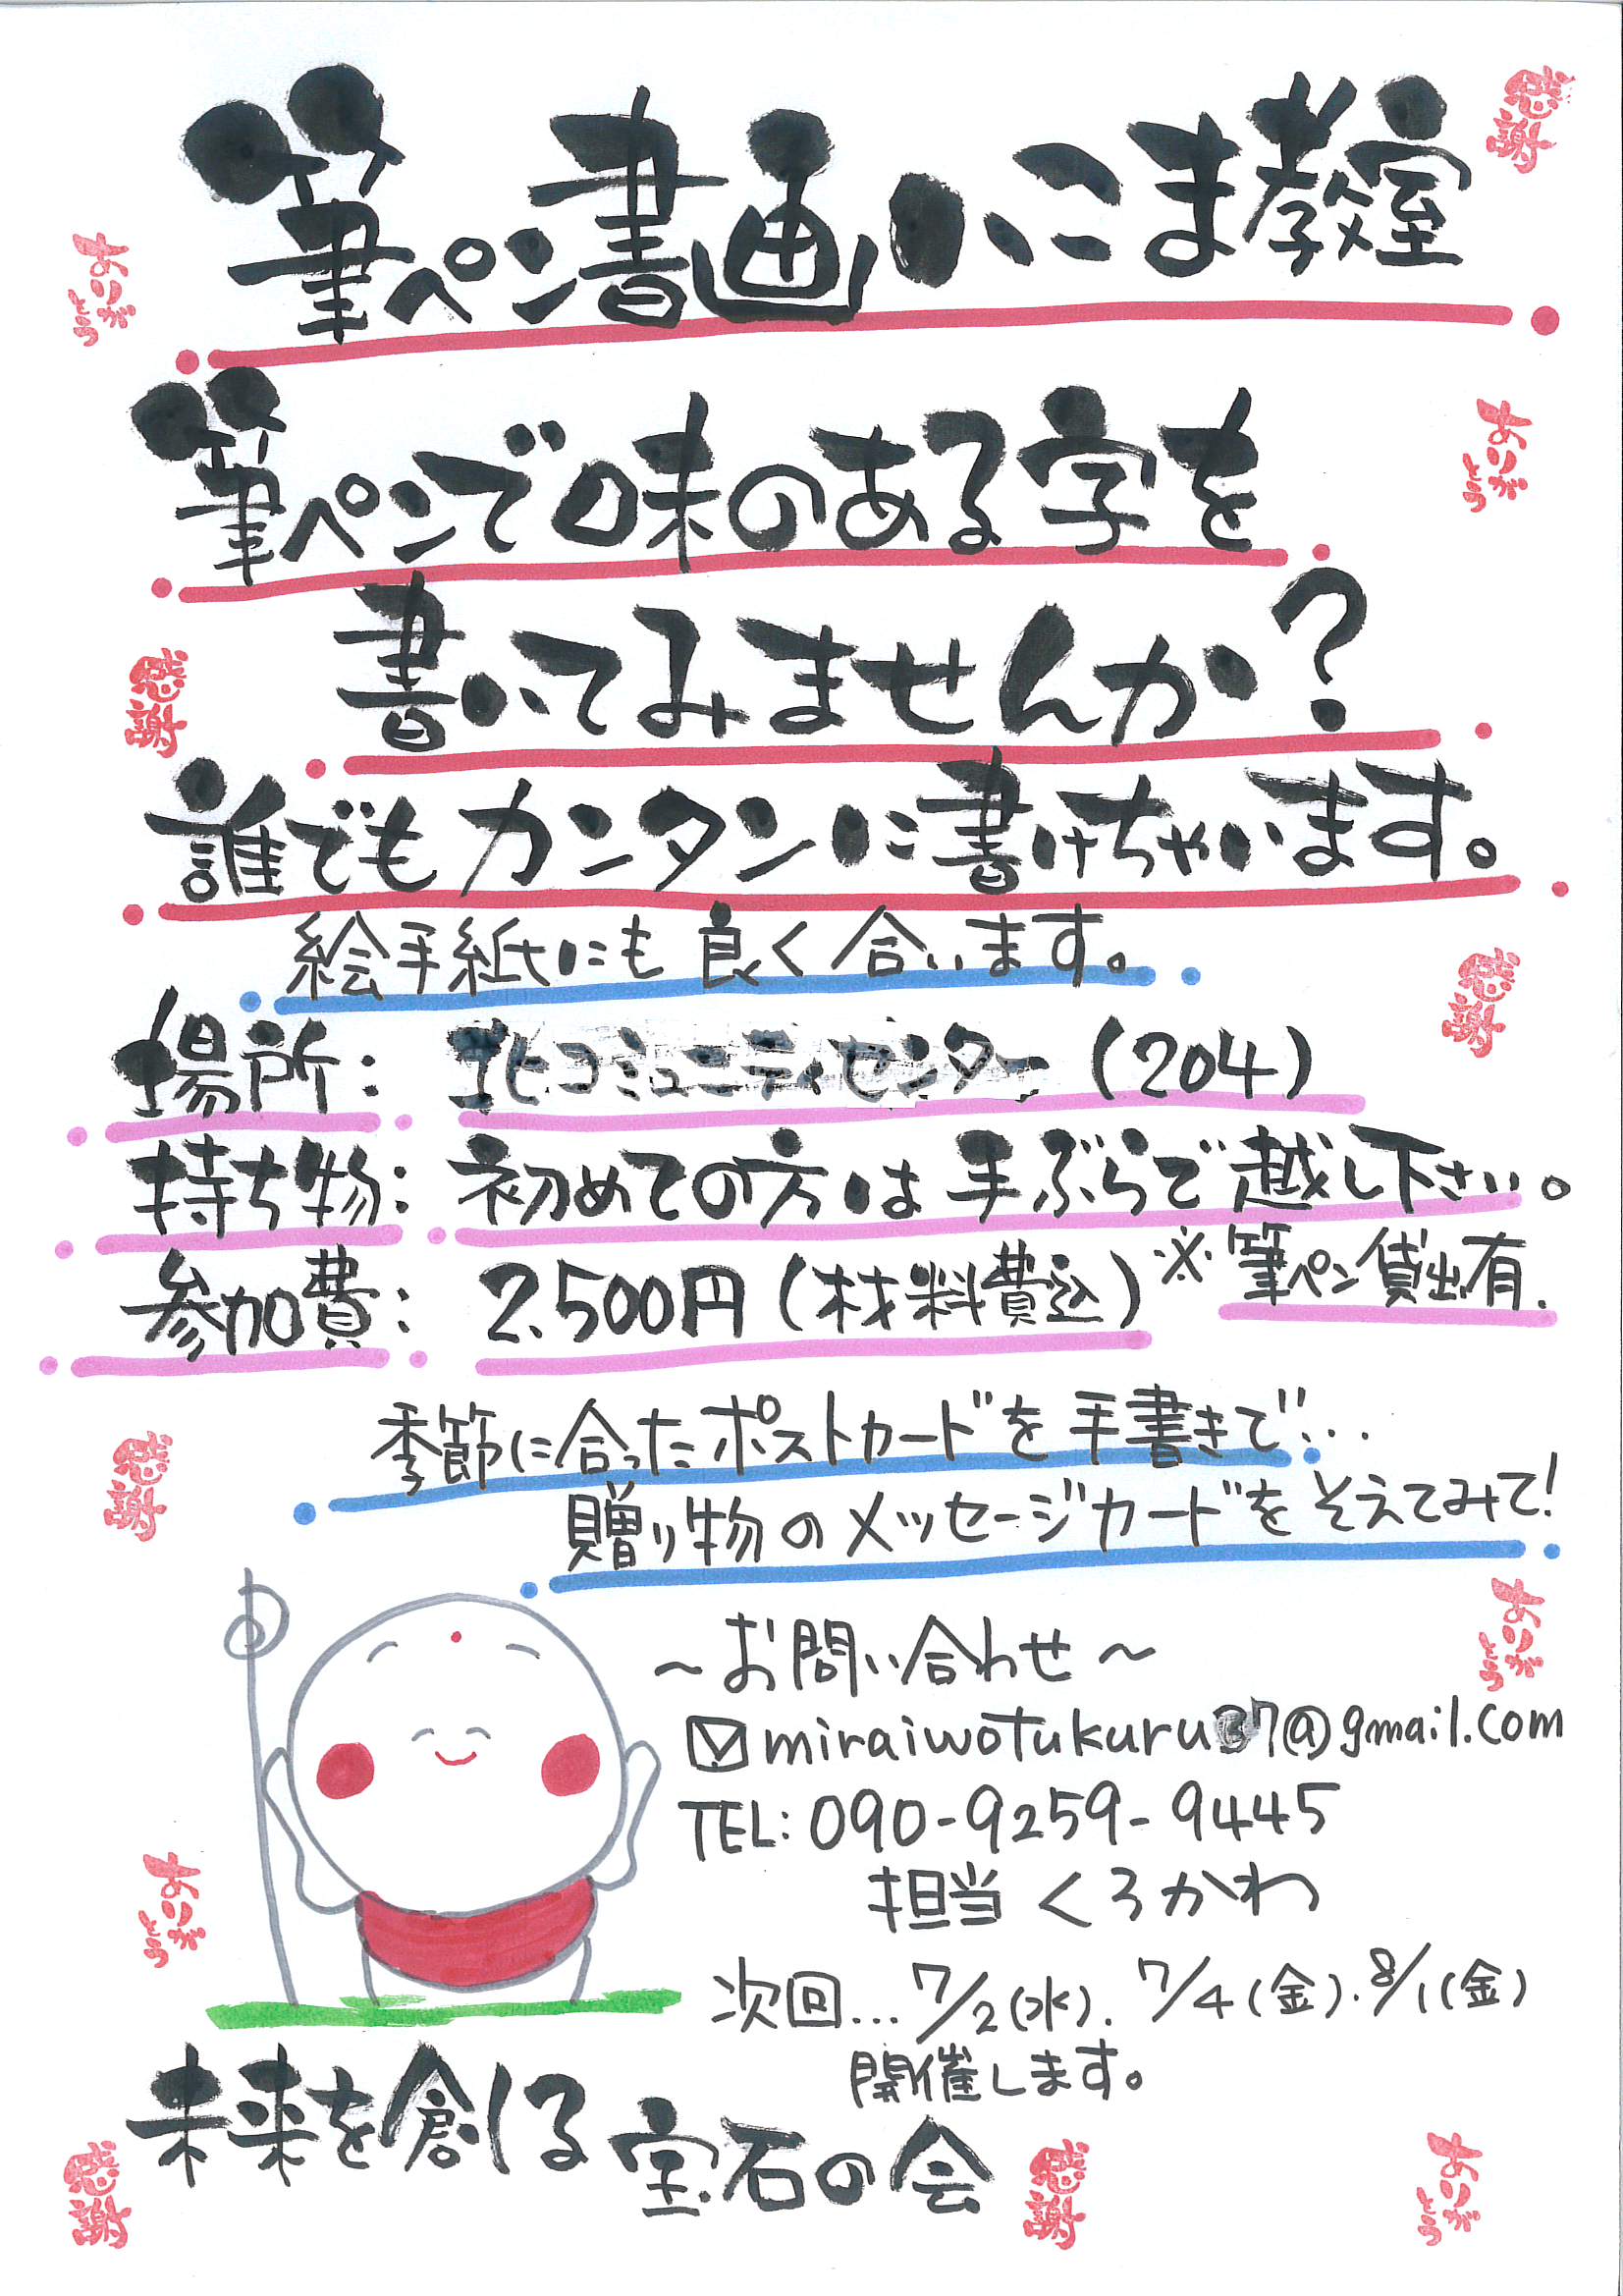 筆ペン書画いこま教室
筆ペンで味のある字を
書いてみませんか?
誰でもカンタンに書けちゃいます。
絵手紙にも良く合います。
場所: コミュニティセンター (204)
持ち物: 初めての方は手ぶらで越し下さい。
参加費: 2.500円(材料費込) ※筆ペン貸出有.
季節に合ったポストカードを手書きで...
贈り物のメッセージカードをそえてみて!
~お問い合わせ~
miraiwotukuru37@gmail.com
TEL: 090-9259-9445
担当 くろかわ
次回... 7/2(水). 7/4(金). 8/1(金)
開催します。
未来を創る宝石の会
感謝
ありがとう
ありがとう
感謝
感謝
感謝
ありがとう
ありがとう
感謝
感謝
ありがとう